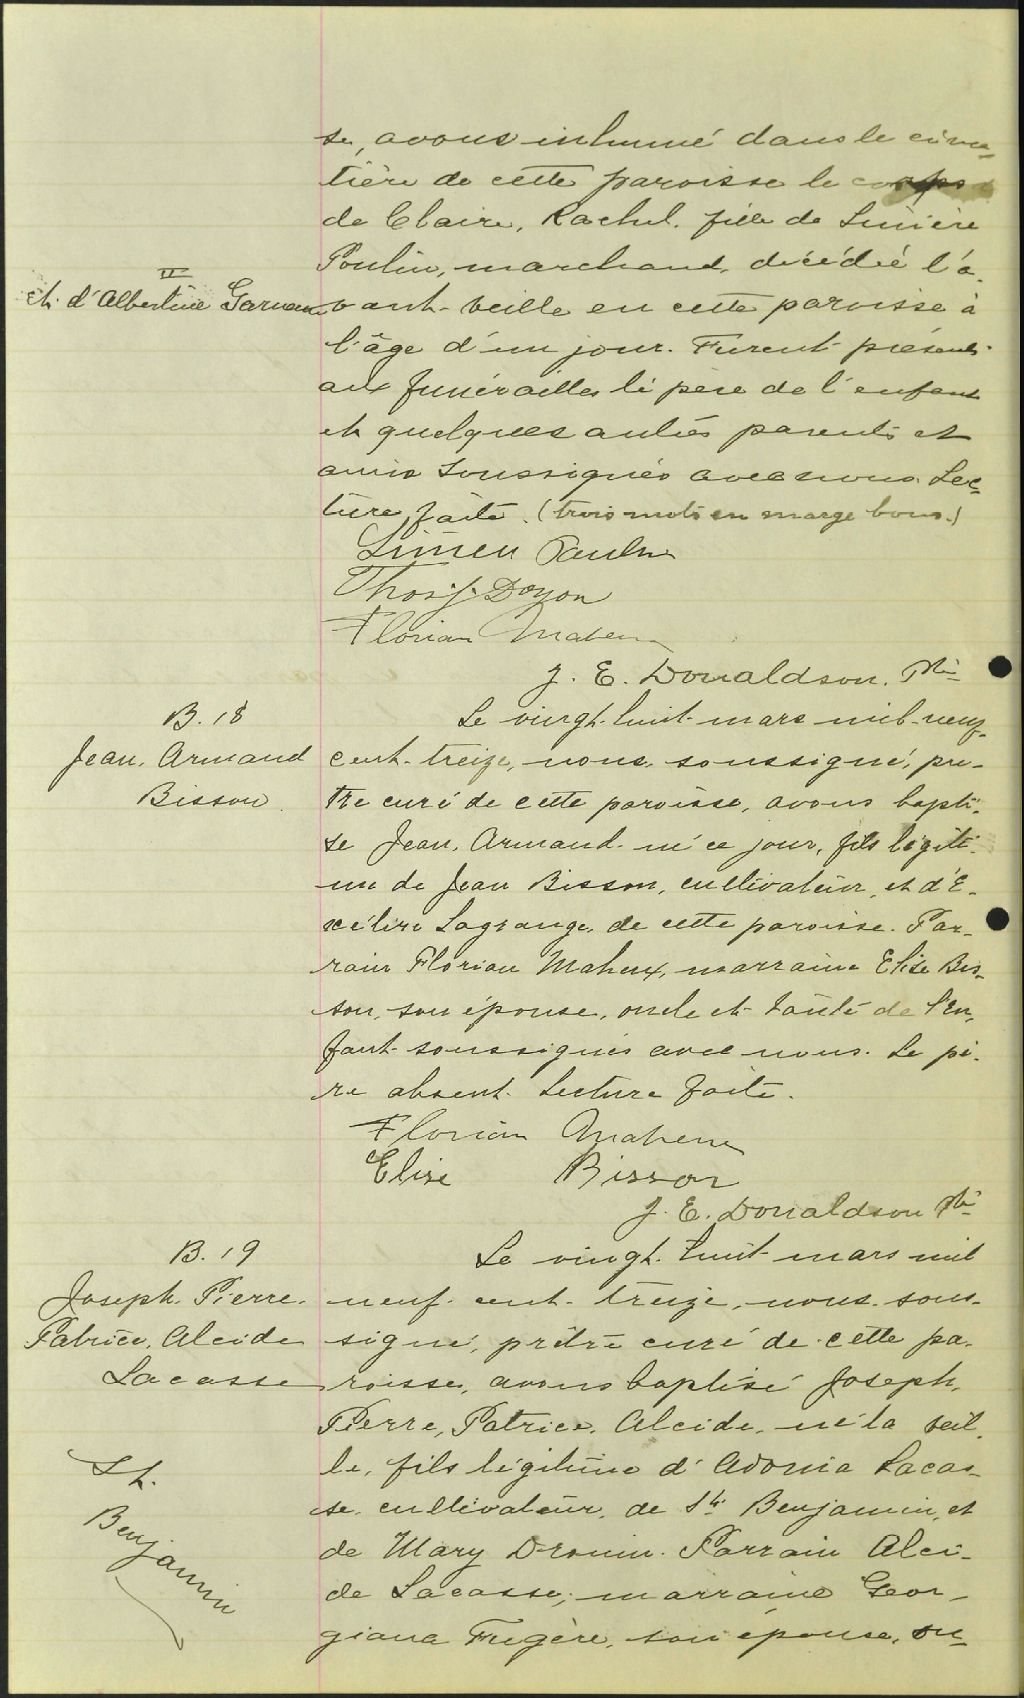 se, avons inhumé dans le cime-
tière de cette paroisse le corps
de Claire, Rachel. fille de Linière
Poulin, marchand, décédée l'a-
II
et d'Albertine Garneau
vant-veille en cette paroisse à
l'âge d'un jour. Furent présents
aux funérailles le père de l'enfant
et quelques autres parents et
amis soussignés avec nous. Lec-
ture faite. (trois mots en marge bons.)
Liniere Poulin
Thos. J. Doyon
Florian Maheux
J. E. Donaldson, Ptre
B. 18
Jean, Armand
Bisson
Le vingt-huit mars mil-neuf-
cent-treize, nous, soussigné, prê-
tre curé de cette paroisse, avons bapti-
sé Jean, Armand né ce jour, fils légiti-
me de Jean Bisson, cultivateur, et d'E-
xélire Lagrange, de cette paroisse. Par-
rain Florian Maheux, marraine Elise Bis-
son, son épouse, oncle et tante de l'en-
fant soussignés avec nous. Le pè-
re absent. Lecture faite.
Florian Maheux
Elise Bisson
J. E. Donaldson Ptre
B. 19
Joseph, Pierre,
Patrice, Alcide
Lacasse
St.
Benjamin
Le vingt-huit mars mil
neuf-cent-treize, nous sous-
signé, prêtre curé de cette pa-
roisse, avons baptisé Joseph,
Pierre, Patrice, Alcide, né la veil-
le, fils légitime d'Adonia Lacas-
se, cultivateur, de St. Benjamin, et
de Mary Drouin. Parrain Alci-
de Lacasse; marraine Geor-
giana Fugère, son épouse, on-